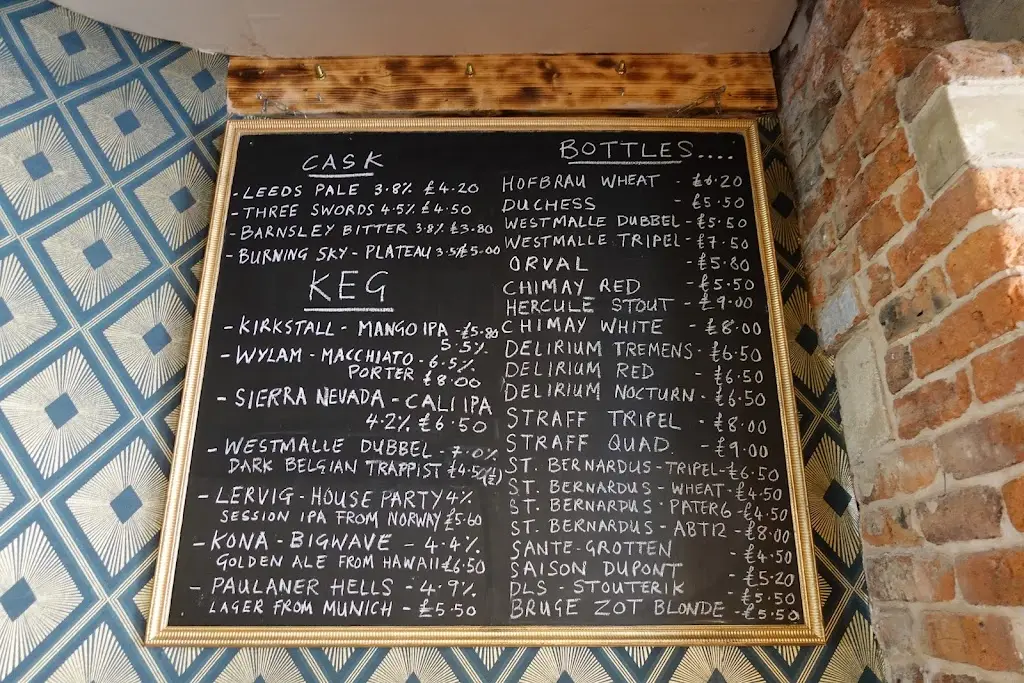 CASK
- LEEDS PALE 3.8% £4.20
- THREE SWORDS 4.5% £4.50
- BARNSLEY BITTER 3.8% £3.80
- BURNING SKY - PLATEAU 3.5% £5.00
KEG
- KIRKSTALL - MANGO IPA - £5.80
5.5%
- WYLAM - MACCHIATO - 6.5%
PORTER £8.00
- SIERRA NEVADA - CALI IPA
4.2% £6.50
- WESTMALLE DUBBEL - 7.0%
DARK BELGIAN TRAPPIST £4.50
- LERVIG - HOUSE PARTY 4%
SESSION IPA FROM NORWAY £5.60
- KONA - BIGWAVE - 4.4%
GOLDEN ALE FROM HAWAII £6.50
- PAULANER HELLS - 4.9%
LAGER FROM MUNICH - £5.50
BOTTLES....
HOFBRAU WHEAT - £6.20
DUCHESS - £5.50
WESTMALLE DUBBEL - £5.50
WESTMALLE TRIPEL - £7.50
ORVAL - £5.80
CHIMAY RED - £5.50
HERCULE STOUT - £9.00
CHIMAY WHITE - £8.00
DELIRIUM TREMENS - £6.50
DELIRIUM RED - £6.50
DELIRIUM NOCTURN - £6.50
STRAFF TRIPEL - £8.00
STRAFF QUAD - £9.00
ST. BERNARDUS - TRIPEL - £6.50
ST. BERNARDUS - WHEAT - £4.50
ST. BERNARDUS - PATER6 - £4.50
ST. BERNARDUS - ABT12 - £8.00
SANTE-GROTTEN - £4.50
SAISON DUPONT - £5.20
DLS - STOUTERIK - £5.50
BRUGE ZOT BLONDE - £5.50